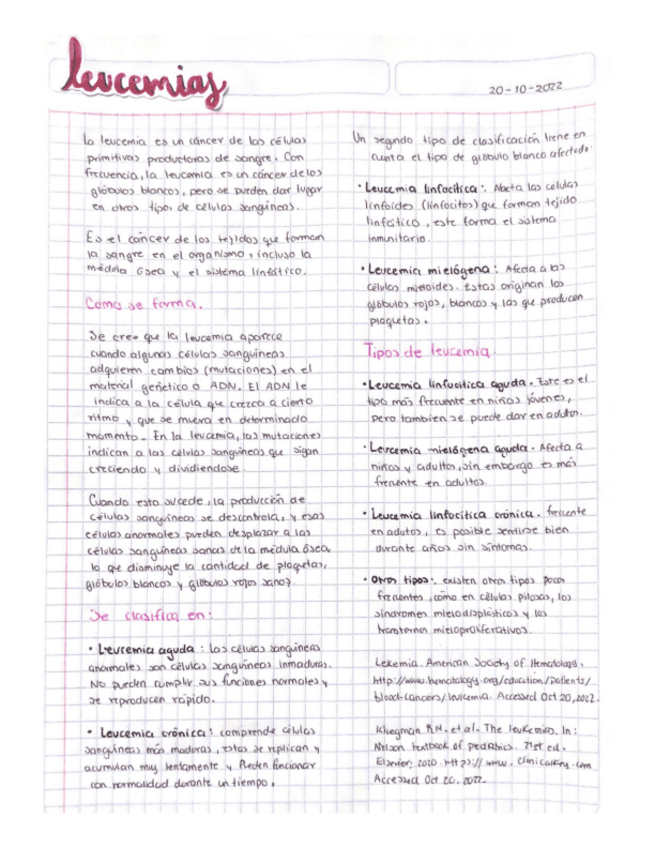 leucemias
20-10-2022
La leucemia es un cáncer de las células
primitivas productoras de sangre. Con
frecuencia, la leucemia es un cáncer de los
glóbulos blancos, pero se pueden dar lugar
en otros tipos de células sanguíneas.
Es el cáncer de los tejidos que forman
la sangre en el organismo, incluso la
médula ósea y el sistema linfático.
Como se forma.
Se cree que la leucemia aparece
cuando algunas células sanguíneas
adquieren cambios (mutaciones) en el
material genético o ADN. El ADN le
indica a la célula que crezca a cierto
ritmo y que se muera en determinado
momento. En la leucemia, las mutaciones
indican a las células sanguíneas que sigan
creciendo y dividiendose.
Cuando esto sucede, la producción de
células sanguíneas se descontrola, y esas
células anormales pueden desplazar a las
células sanguíneas sanas de la médula ósea,
lo que disminuye la cantidad de plaquetas,
glóbulos blancos y glóbulos rojos sanos.
Se clasifica en:
• Leucemia aguda: las células sanguíneas
anormales son células sanguíneas inmaduras.
No pueden cumplir sus funciones normales y
se reproducen rápido.
• Leucemia crónica: comprende células
sanguíneas más maduras, estas se replican y
acumulan muy lentamente y pueden funcionar
con normalidad durante un tiempo.
Un segundo tipo de clasificación tiene en
cunta el tipo de glóbulo blanco afectado.
• Leucemia linfocítica: Afecta las células
linfoides (linfocitos) que forman tejido
linfático, este forma el sistema
inmunitario.
• Leucemia mielógena: Afecta a las
células mieloides. Estas originan los
glóbulos rojos, blancos y las que producen
plaquetas.
Tipos de leucemia.
• Leucemia linfocitica aguda. Este es el
tipo más frecuente en niños jóvenes,
pero tambien se puede dar en adultos.
• Leucemia mielógena aguda. Afecta a
niños y adultos, sin embargo es más
frecuente en adultos.
• Leucemia linfocítica crónica. frecuente
en adultos, es posible sentirse bien
durante años sin síntomas.
• Otros tipos: existen otros tipos pocos
frecuentes, como en células pilosas, los
síndromes mielodisplásicos y los
transtornos mieloproliferativos.
Lekemia. American Society of Hematology.
http://www.hematology.org/education/patients/
blood-cancers/leukemia. Accessed Oct 20, 2022.
Kliegman R.M. et al. The leukemias. In:
Nelson textbook of pediatrics. 21st ed.
Elsevier; 2020. http://www. clinicalkey.com
Accessed Oct 20. 2022.